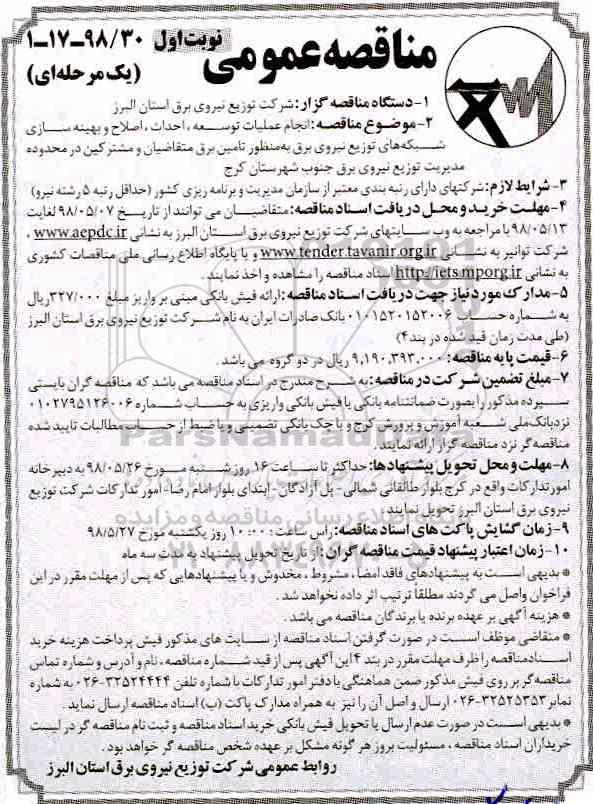 مناقصه عمومی
نوبت اول
۱-۱۷-۹۸/۳۰
(یک مرحله‌ای)
۱-دستگاه مناقصه گزار: شرکت توزیع نیروی برق استان البرز
۲-موضوع مناقصه: انجام عملیات توسعه ، احداث ، اصلاح و بهینه سازی
شبکه‌های توزیع نیروی برق به‌منظور تامین برق متقاضیان و مشترکین در محدوده
مدیریت توزیع نیروی برق جنوب شهرستان کرج
۳- شرایط لازم: شرکتهای دارای رتبه بندی معتبر از سازمان مدیریت و برنامه ریزی کشور (حداقل رتبه ۵ رشته نیرو)
۴- مهلت خرید و محل دریافت اسناد مناقصه: متقاضیان می توانند از تاریخ ۹۸/۰۵/۰۷ لغایت
۹۸/۰۵/۱۳ با مراجعه به وب سایتهای شرکت توزیع نیروی برق استان البرز به نشانی www.aepdc.ir ،
شرکت توانیر به نشانی www.tender.tavanir.org.ir و یا پایگاه اطلاع رسانی ملی مناقصات کشوری
به نشانی http://iets.mporg.ir اسناد مناقصه را مشاهده و اخذ نمایند .
۵- مدارک مورد نیاز جهت دریافت اسناد مناقصه: ارائه فیش بانکی مبنی بر واریز مبلغ ۳۲۷/۰۰۰ ریال
به شماره حساب ۰۱۰۱۵۲۰۱۵۲۰۰۶ بانک صادرات ایران به نام شرکت توزیع نیروی برق استان البرز
(طی مدت زمان قید شده در بند۴)
۶-قیمت پایه مناقصه: ۹,۱۹۰,۳۹۳,۰۰۰ ریال در دو گروه می باشد .
۷- مبلغ تضمین شرکت در مناقصه: به شرح مندرج در اسناد مناقصه می باشد که مناقصه گران بایستی
سپرده مذکور را بصورت ضمانتنامه بانکی یا فیش بانکی واریزی به حساب شماره ۰۱۰۲۷۹۵۱۲۶۰۰۶
نزد بانک ملی شعبه آموزش و پرورش کرج و یا چک بانکی تضمینی و یا ضبط از حساب مطالبات تایید شده
مناقصه گر نزد مناقصه گزار ارائه نمایند .
۸- مهلت و محل تحویل پیشنهادها: حداکثر تا ساعت ۱۶ روز شنبه مورخ ۹۸/۰۵/۲۶ به دبیرخانه
امور تدارکات واقع در کرج بلوار طالقانی شمالی- پل آزادگان- ابتدای بلوار امام رضا- امور تدارکات شرکت توزیع
نیروی برق استان البرز تحویل نمایند .
۹- زمان گشایش پاکت های اسناد مناقصه: راس ساعت : ۱۰:۰۰ روز یکشنبه مورخ ۹۸/۵/۲۷
۱۰- زمان اعتبار پیشنهاد قیمت مناقصه گران: از تاریخ تحویل پیشنهاد به مدت سه ماه
* بدیهی است به پیشنهادهای فاقد امضا ، مشروط ، مخدوش و یا پیشنهادهایی که پس از مهلت مقرر در این
فراخوان واصل می گردند مطلقا ترتیب اثر داده نخواهد شد .
* هزینه آگهی بر عهده برنده یا برندگان مناقصه می باشد .
* متقاضی موظف است در صورت گرفتن اسناد مناقصه از سایت های مذکور فیش پرداخت هزینه خرید
اسناد مناقصه را ظرف مهلت مقرر در بند ۴ این آگهی پس از قید شماره مناقصه ، نام و آدرس و شماره تماس
مناقصه گر بر روی فیش مذکور ضمن هماهنگی با دفتر امور تدارکات با شماره تلفن ۳۲۵۲۴۴۴۴-۰۲۶ به شماره
نمابر ۳۲۵۲۵۳۵۳-۰۲۶ ارسال و اصل آن را نیز به همراه مدارک پاکت (ب) اسناد مناقصه ارسال نماید .
* بدیهی است در صورت عدم ارسال یا تحویل فیش بانکی خرید اسناد مناقصه و ثبت نام مناقصه گر در لیست
خریداران اسناد مناقصه ، مسئولیت بروز هر گونه مشکل بر عهده شخص مناقصه گر خواهد بود .
روابط عمومی شرکت توزیع نیروی برق استان البرز